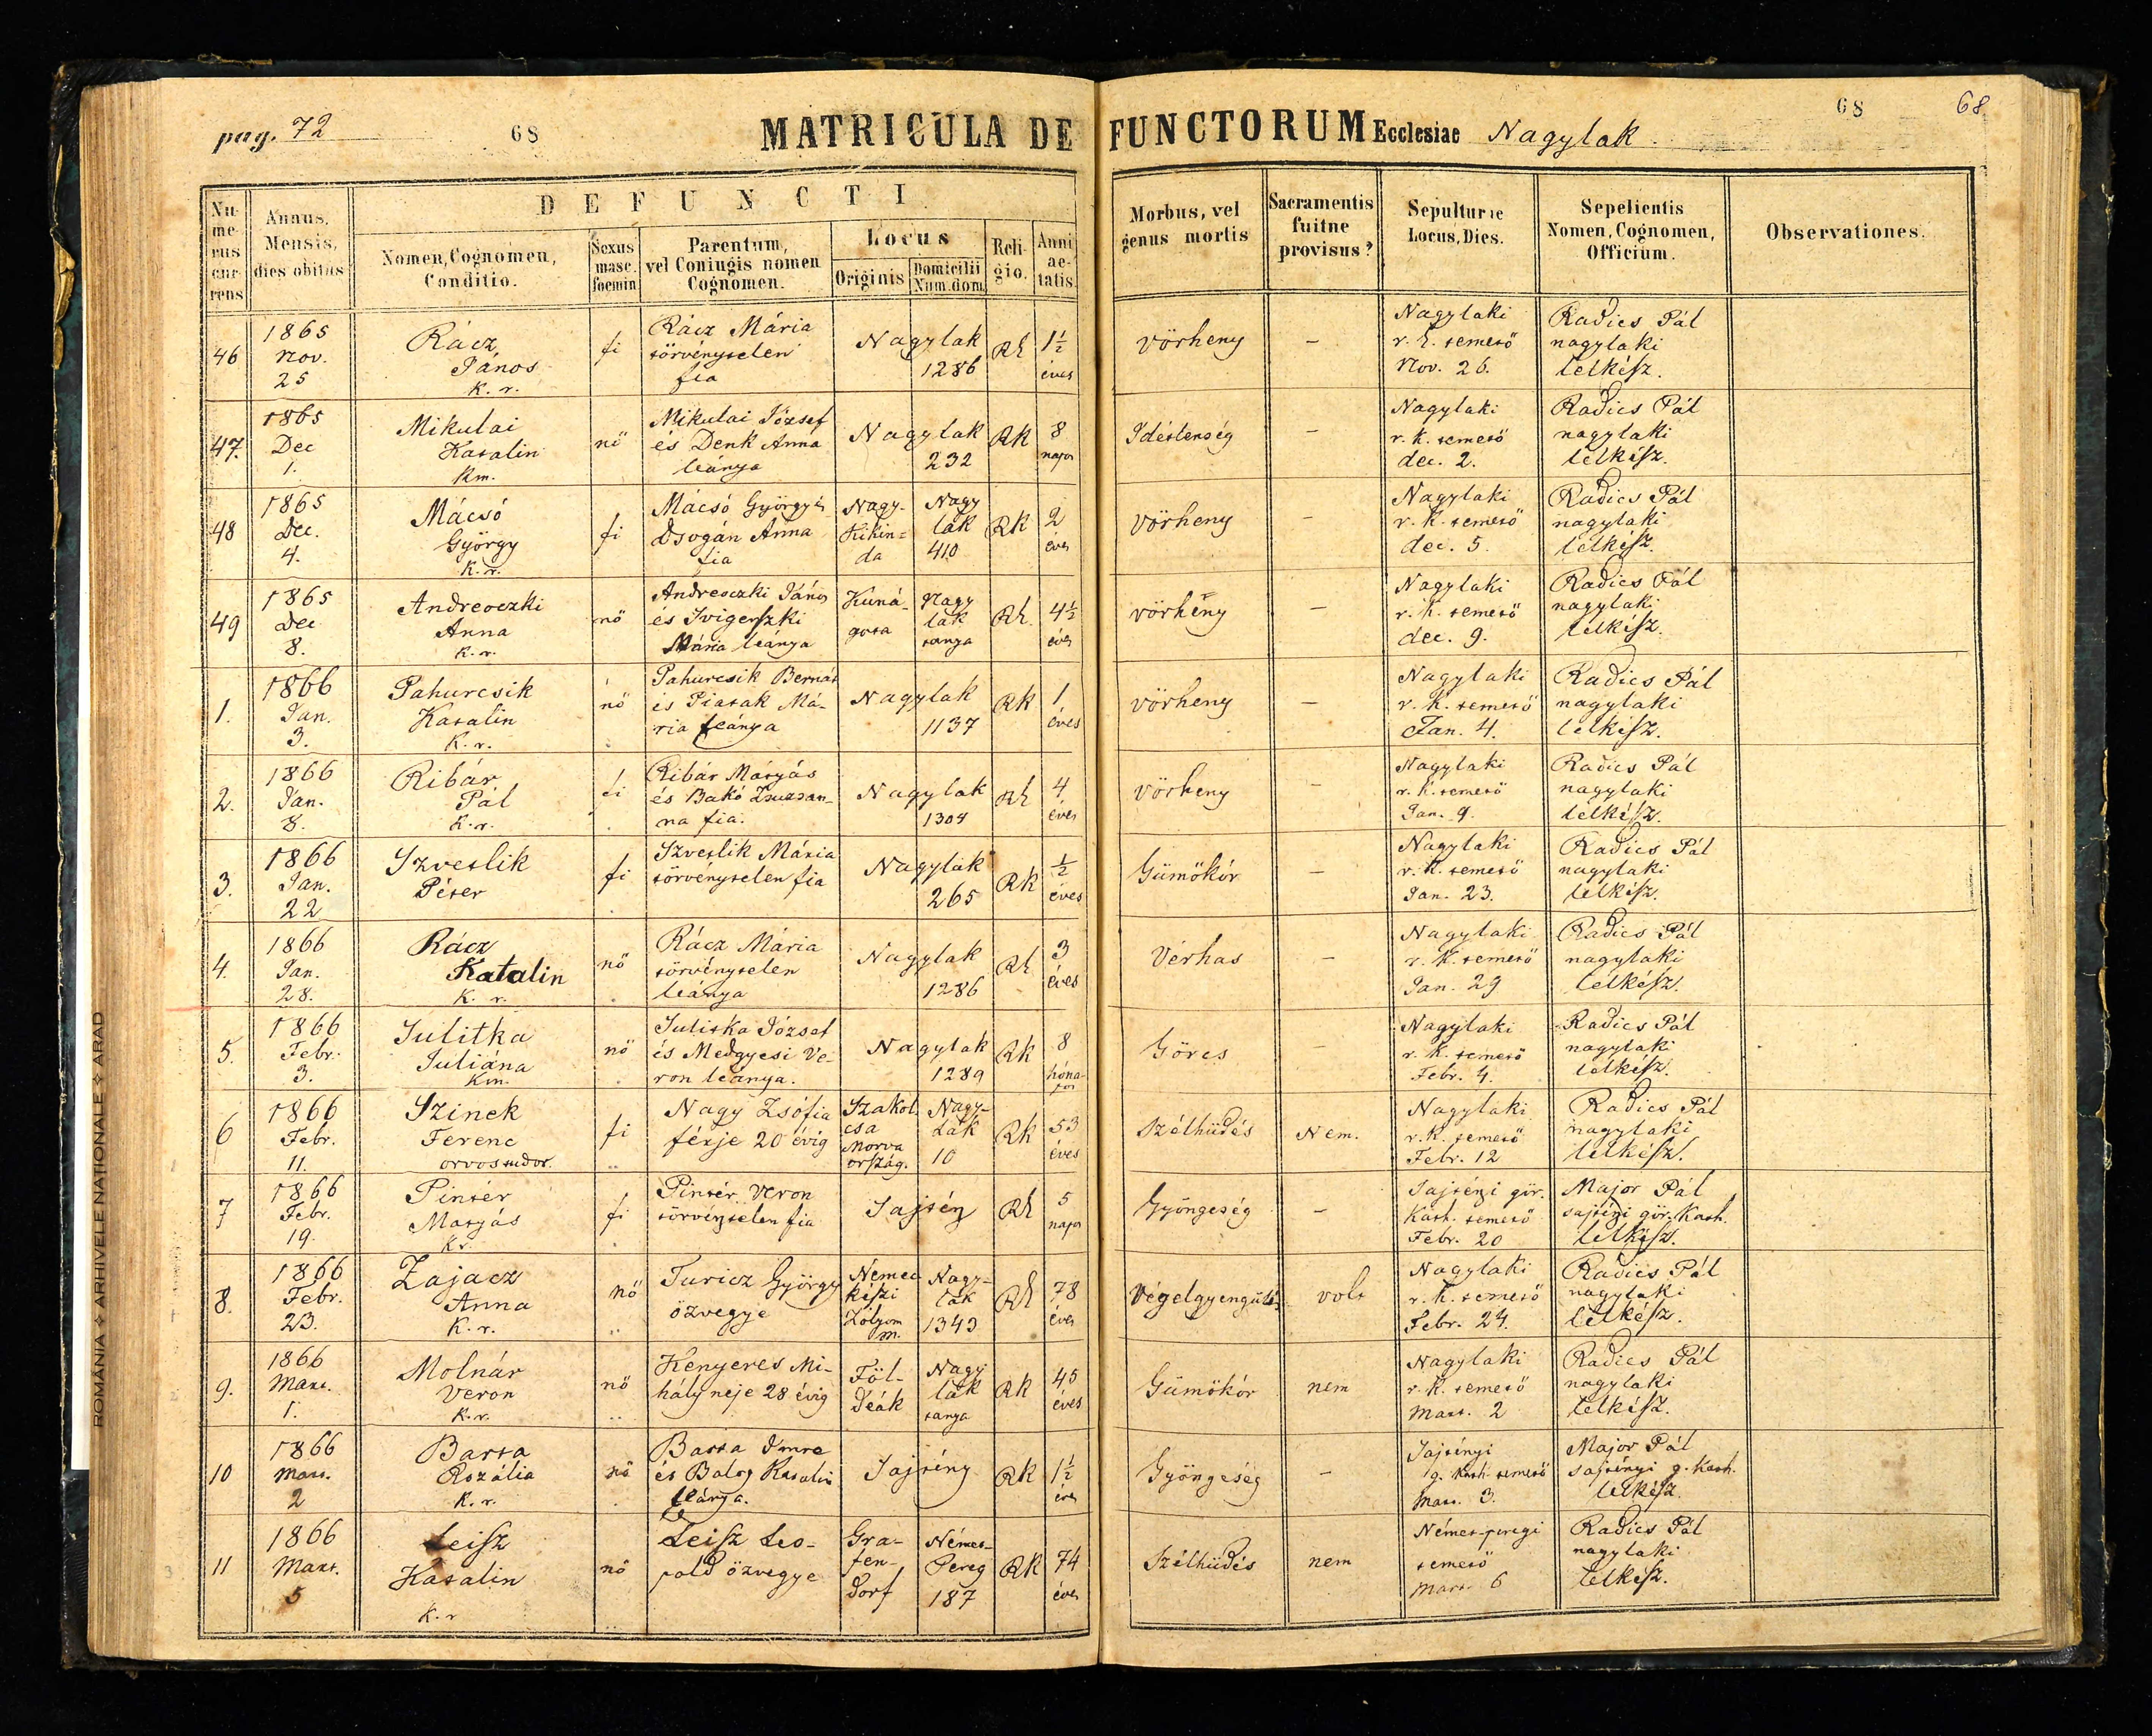 pag. 72
68
MATRICULA DEFUNCTORUM Ecclesiae Nagylak
68
68
Numerus currens
Annus, Mensis, dies obitus
DEFUNCTI
Nomen, Cognomen, Conditio.
Sexus masc. foemin
Parentum, vel Coniugis nomen Cognomen.
Locus
Originis
Domicilii Num. dom.
Religio.
Anni aetatis
Morbus, vel genus mortis
Sacramentis fuitne provisus?
Sepulturae Locus, Dies.
Sepelientis Nomen, Cognomen, Officium.
Observationes.
46 1865 Nov. 25 Rácz János k. r. fi Rácz Mária törvénytelen fia Nagylak 1286 Rk 1½ éves vörheny – Nagylaki r. k. temető Nov. 26. Radics Pál nagylaki lelkész.
47. 1865 Dec 1. Mikulai Katalin km. nő Mikulai József és Denk Anna leánya Nagylak 232 RK 8 napos Idétlenség – Nagylaki r. k. temető dec. 2. Radics Pál nagylaki lelkész.
48 1865 Dec. 4. Mácsó György k. r. fi Mácsó György és Dsogán Anna fia Nagy-Kikinda Nagylak 410 RK 2 éves vörheny – Nagylaki r. k. temető dec. 5. Radics Pál nagylaki lelkész.
49 1865 Dec 8. Andreoczki Anna k. r. nő Andreoczki János és Mária leánya Kunágota Nagylak tanya Rk. 4½ éves vörheny – Nagylaki r. k. temető dec. 9. Radics Pál nagylaki lelkész.
1. 1866 Jan. 3. Pahurcsik Katalin k. r. nő Pahurcsik Bernát és Piatak Mária leánya Nagylak 1137 RK 1 éves vörheny – Nagylaki r. k. temető Jan. 4. Radics Pál nagylaki lelkész.
2. 1866 Jan. 8. Ribár Pál k. r. fi Ribár Mátyás és Bakó Zsuzsanna fia. Nagylak 1304 Rk 4 éves vörheny – Nagylaki r. k. temető Jan. 9. Radics Pál nagylaki lelkész.
3. 1866 Jan. 22 Szvetlik Péter fi Szvetlik Mária törvénytelen fia Nagylak 265 RK ½ éves Gümőkór – Nagylaki r. k. temető Jan. 23. Radics Pál nagylaki lelkész.
4. 1866 Jan. 28. Rácz Katalin k. r. nő Rácz Mária törvénytelen leánya Nagylak 1286 Rk 3 éves Vérhas – Nagylaki r. k. temető Jan. 29 Radics Pál nagylaki lelkész.
5. 1866 Febr. 3. Julitka Juliána km. nő Julitka József és Medgyesi Veron leánya. Nagylak 1289 RK 8 hónapos Görcs – Nagylaki r. k. temető Febr. 4. Radics Pál nagylaki lelkész.
6 1866 Febr. 11. Szinek Ferenc orvostudor. fi Nagy Zsófia férje 20 évig Szakolcsa Morvaország. Nagylak 10 RK 53 éves Szélhűdés Nem. Nagylaki r. k. temető Febr. 12 Radics Pál nagylaki lelkész.
7 1866 Febr. 19. Pintér Mátyás kr. fi Pintér Veron törvénytelen fia Sajtény Rk 5 napos Gyöngeség – Sajtényi gör. kath. temető Febr. 20 Major Pál sajtényi gör. kath. lelkész.
8. 1866 Febr. 23. Zajacz Anna k. r. nő Turicz György özvegye Zólyom m. Nagylak 1343 Rk 78 éves Végelgyengülés volt Nagylaki r. k. temető Febr. 24. Radics Pál nagylaki lelkész.
9. 1866 Mart. 1. Molnár Veron k. r. nő Kenyeres Mihály neje 28 évig Földeák Nagylak tanya RK 45 éves Gümőkór nem Nagylaki r. k. temető Mart. 2 Radics Pál nagylaki lelkész.
10 1866 Mart. 2 Barta Rozália k. r. nő Barta Imre és Balog Katalin leánya. Sajtény RK 1½ éves Gyöngeség – Sajtényi g. kath. temető Mart. 3. Major Pál sajtényi g. kath. lelkész.
11 1866 Mart. 5 Leisz Katalin k. r nő Leisz Leopold özvegye Grafendorf Német-Pereg 187 RK 74 éves Szélhűdés nem Német-peregi temető Mart. 6 Radics Pál nagylaki lelkész.
ROMÂNIA ARHIVELE NATIONALE ARAD